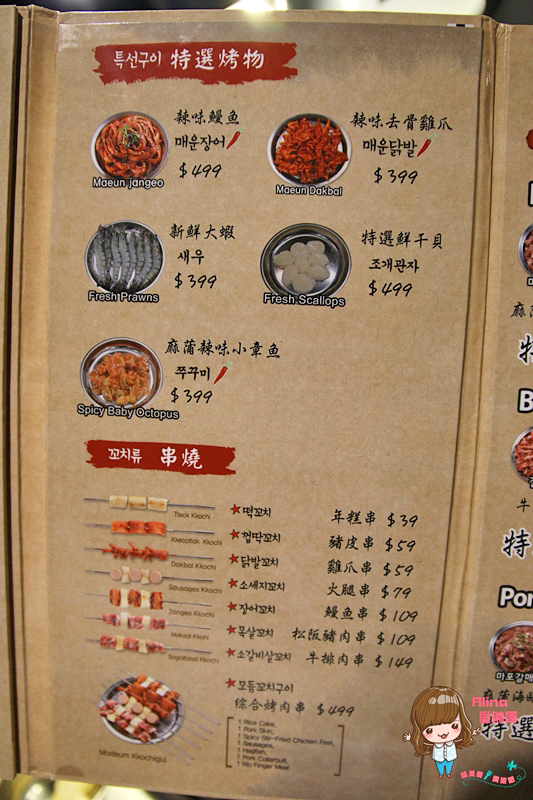 특선구이 特選烤物
辣味鰻魚
매운장어
$499
Maeun jangeo
辣味去骨雞爪
매운닭발
$399
Maeun Dakbal
新鮮大蝦
새우
$399
Fresh Prawns
特選鮮干貝
조개관자
$499
Fresh Scallops
麻蒲辣味小章魚
쭈꾸미
$399
Spicy Baby Octopus
꼬치류 串燒
Tteok Kkochi
떡꼬치 年糕串 $39
껍딱꼬치 豬皮串 $59
Dakbal Kkochi
닭발꼬치 雞爪串 $59
Sausages Kkochi
소세지꼬치 火腿串 $79
Jangeo Kkochi
장어꼬치 鰻魚串 $109
목살꼬치 松阪豬肉串 $109
소갈비살꼬치 牛排肉串 $149
모듬꼬치구이
綜合烤肉串 $499
Modeum Kkochigui
1 Rice Cake,
1 Pork Skin,
1 Spicy Stir-Fried Chicken Feet,
1 Sausages,
1 Hagfish,
1 Pork Collarbutt,
1 Rib Finger Meat
特
B
牛
特
Por
마포갈매
特選
Alina
愛琳娜